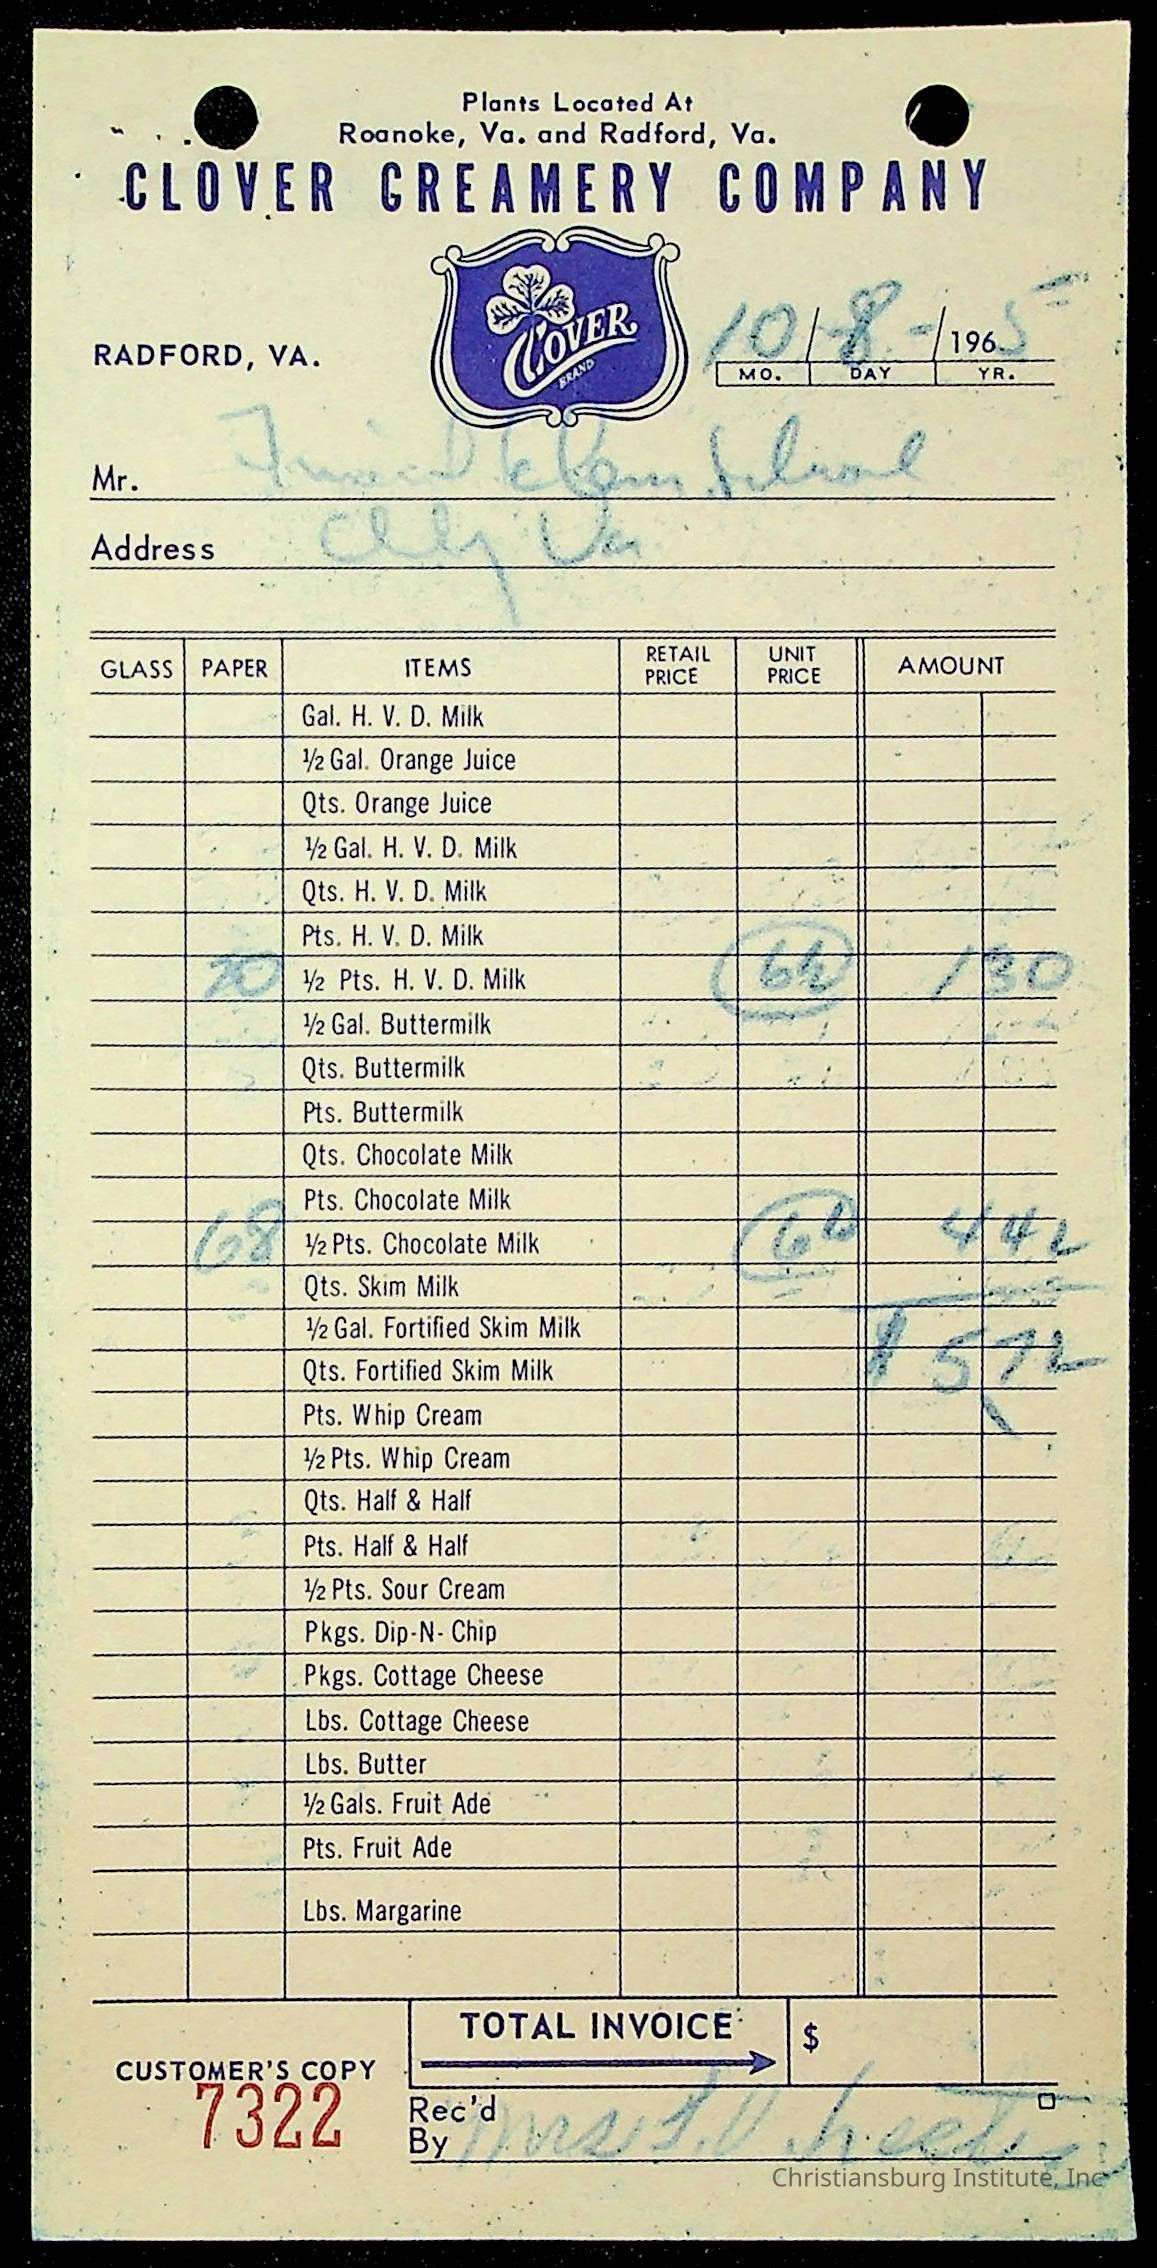 Plants Located At
Roanoke, Va. and Radford, Va.
CLOVER CREAMERY COMPANY
CLOVER
BRAND
RADFORD, VA.
10 / 8 - / 1965
MO. DAY YR.
Mr. School
Address Va
GLASS PAPER ITEMS RETAIL PRICE UNIT PRICE AMOUNT
Gal. H. V. D. Milk
½ Gal. Orange Juice
Qts. Orange Juice
½ Gal. H. V. D. Milk
Qts. H. V. D. Milk
Pts. H. V. D. Milk
20 ½ Pts. H. V. D. Milk 6½ 130
½ Gal. Buttermilk
Qts. Buttermilk
Pts. Buttermilk
Qts. Chocolate Milk
Pts. Chocolate Milk
68 ½ Pts. Chocolate Milk 6½ 442
Qts. Skim Milk
½ Gal. Fortified Skim Milk $ 572
Qts. Fortified Skim Milk
Pts. Whip Cream
½ Pts. Whip Cream
Qts. Half & Half
Pts. Half & Half
½ Pts. Sour Cream
Pkgs. Dip-N-Chip
Pkgs. Cottage Cheese
Lbs. Cottage Cheese
Lbs. Butter
½ Gals. Fruit Ade
Pts. Fruit Ade
Lbs. Margarine
TOTAL INVOICE $
CUSTOMER'S COPY
7322
Rec'd
By Mrs
Christiansburg Institute, Inc